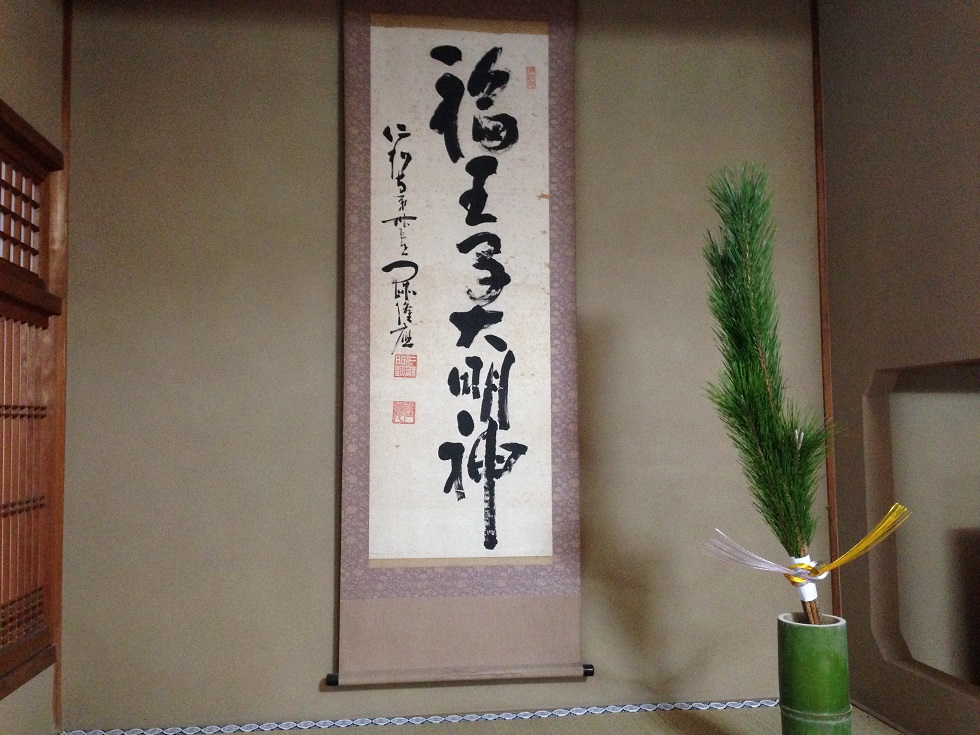 福王子大明神
仁和寺第世門跡隆應